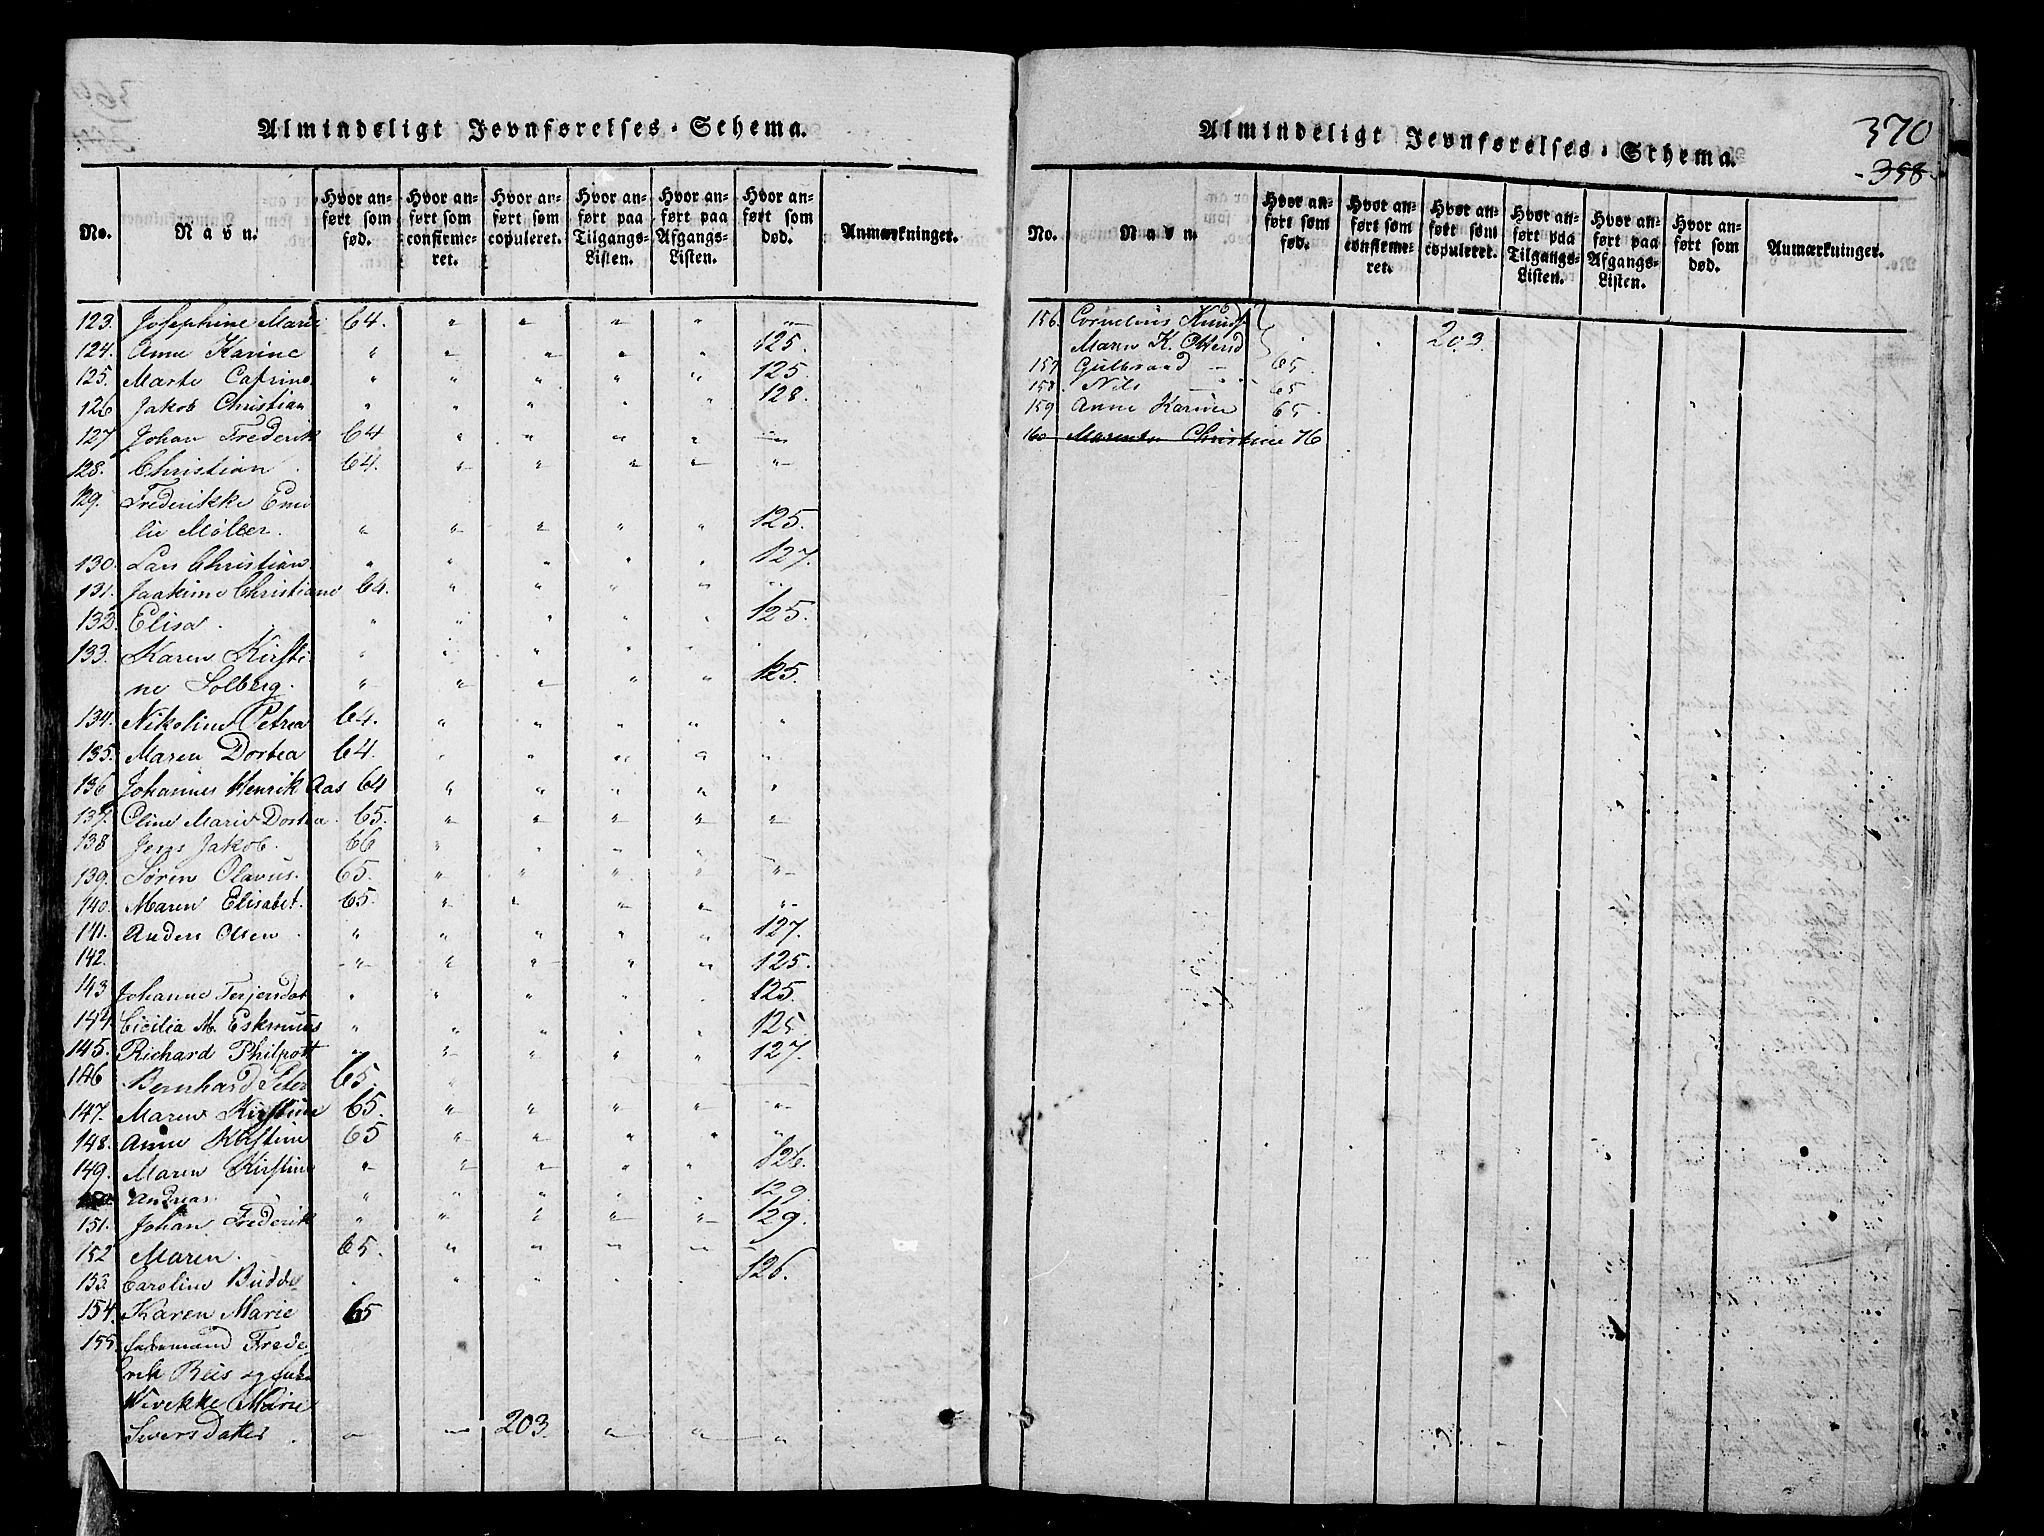 Almindeligt Jevnførelses-Schema.
No. Navn. Hvor anført som fød. Hvor anført som confirmeret. Hvor anført som copuleret. Hvor anført paa Tilgangs-Listen. Hvor anført paa Afgangs-Listen. Hvor anført som død. Anmærkninger.
123. Josephine Marie 64. " " " " "
124. Anne Karine " " " " " 125.
125. Marte Catrine " " " " " 125.
126 Jakob Christian " " " " " 128.
127 Johan Frederik 64 " " " " "
128. Christian 64. " " " " "
129. Frederikke Emi
lie Møller. " " " " " 125.
130. Lars Christian " " " " " 127.
131. Joakime Christiane 64. " " " " "
132. Elisa " " " " " 125.
133. Karen Kirsti
ne Solberg. " " " " " 125.
134. Nikoline Petrea 64. " " " " "
135. Maren Dortea 64. " " " " "
136 Johannes Henrik Aas 64 " " " " "
137. Eline Marie Dortea 65. " " " " "
138 Jens Jakob. 66 " " " " "
139. Søren Olavus. 65. " " " " "
140. Maren Elisabet. 65. " " " " "
141. Anders Olsen " " " " " 127.
142. " " " " " 125.
143 Johanne Terjersdat " " " " " 125.
144. Cicilia M. " " " " " 125.
145. Richard Philpott " " " " " 127.
146 Bernhard 65.
147. Maren Kirstine 65. " " " " "
148. Anne Kirstine 65 " " " " "
149. Maren Kirstine " " " " " 126.
Andreas. " " " " " 129.
151. Johan Frederik " " " " " 129.
152 Maren. 65. " " " " "
153. Caroline Budde " " " " " 126.
154. Karen Marie 65
155. Frede
rik Reis og
Vivekke Marie
Siversdatter " " 203. " " "
Almindeligt Jevnførelses-Schema.
370
358
No. Navn. Hvor anført som fød. Hvor anført som confirmeret. Hvor anført som copuleret. Hvor anført paa Tilgangs-Listen. Hvor anført paa Afgangs-Listen. Hvor anført som død. Anmærkninger.
156. Cornelius Knuds
Maren K. Ottersd 203.
157 Gulbrand 65.
158. Nils 65
159. Anne Karine 65.
160 Christine 76